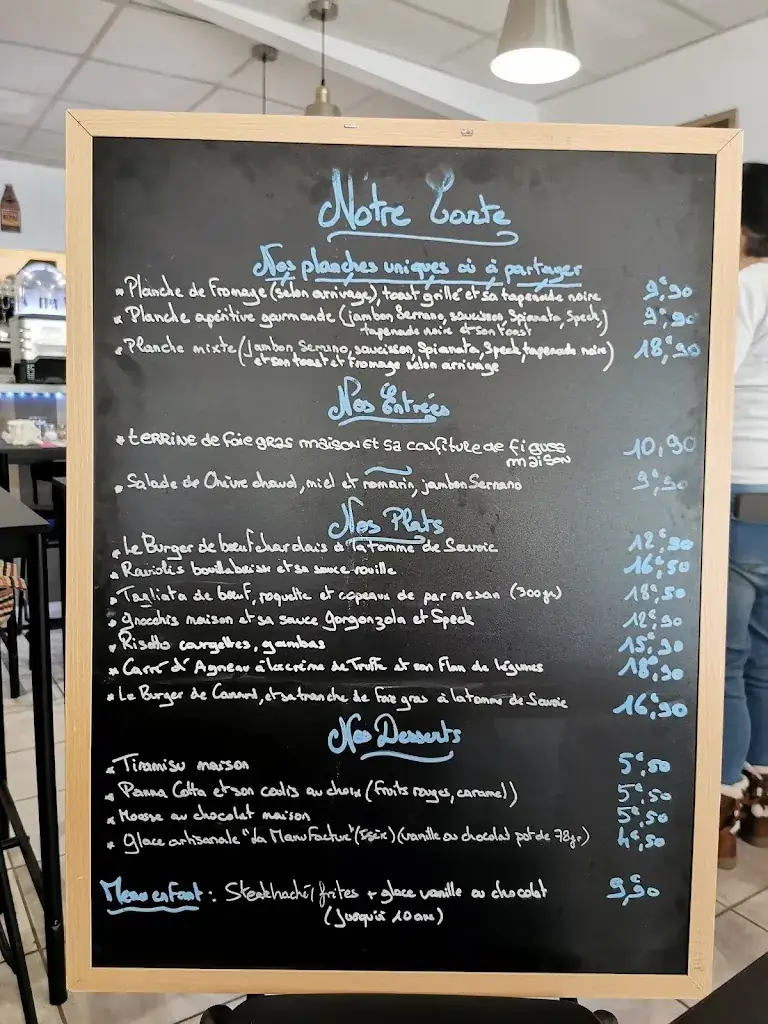 Nôtre Carte
Nos planches uniques où à partager
* Planche de Fromage (selon arrivage), toast grillé et sa tapenade noire 9€,90
* Planche apéritive gourmande (jambon Serrano, saucisson, Spianata, Speck,) 9€,90
tapenade noire et son toast
* Planche mixte (Jambon Serrano, saucisson, Spianata, Speck, tapenade noire) 18€,90
et son toast et Fromage selon arrivage
Nos Entrées
* terrine de foie gras maison et sa confiture de figues 10,90
maison
* Salade de Chèvre chaud, miel et romarin, jambon Serrano 9€,90
Nos Plats
* Le Burger de bœuf charolais à la tomme de Savoie 12€,90
* Raviolis bouillabaisse et sa sauce rouille 16€,50
* Tagliata de bœuf, roquette et copeaux de parmesan (300gr) 18€,50
* gnocchis maison et sa sauce Gorgonzola et Speck 12€,90
* Risotto courgettes, gambas 15€,90
* Carré d'Agneau à la crème de Truffe et son Flan de légumes 18€,90
* Le Burger de Canard, et sa tranche de foie gras à la tomme de Savoie 16€,90
Nos Desserts
* Tiramisu maison 5€,50
* Panna Cotta et son coulis au choix (fruits rouges, caramel) 5€,50
* Mousse au chocolat maison 5€,50
* Glace artisanale "La Manufacture" (vanille ou chocolat pot de 78gr) 4€,50
Menu enfant : Steakhaché/frites + glace vanille ou chocolat 9€,90
(Jusqu'à 10 ans)